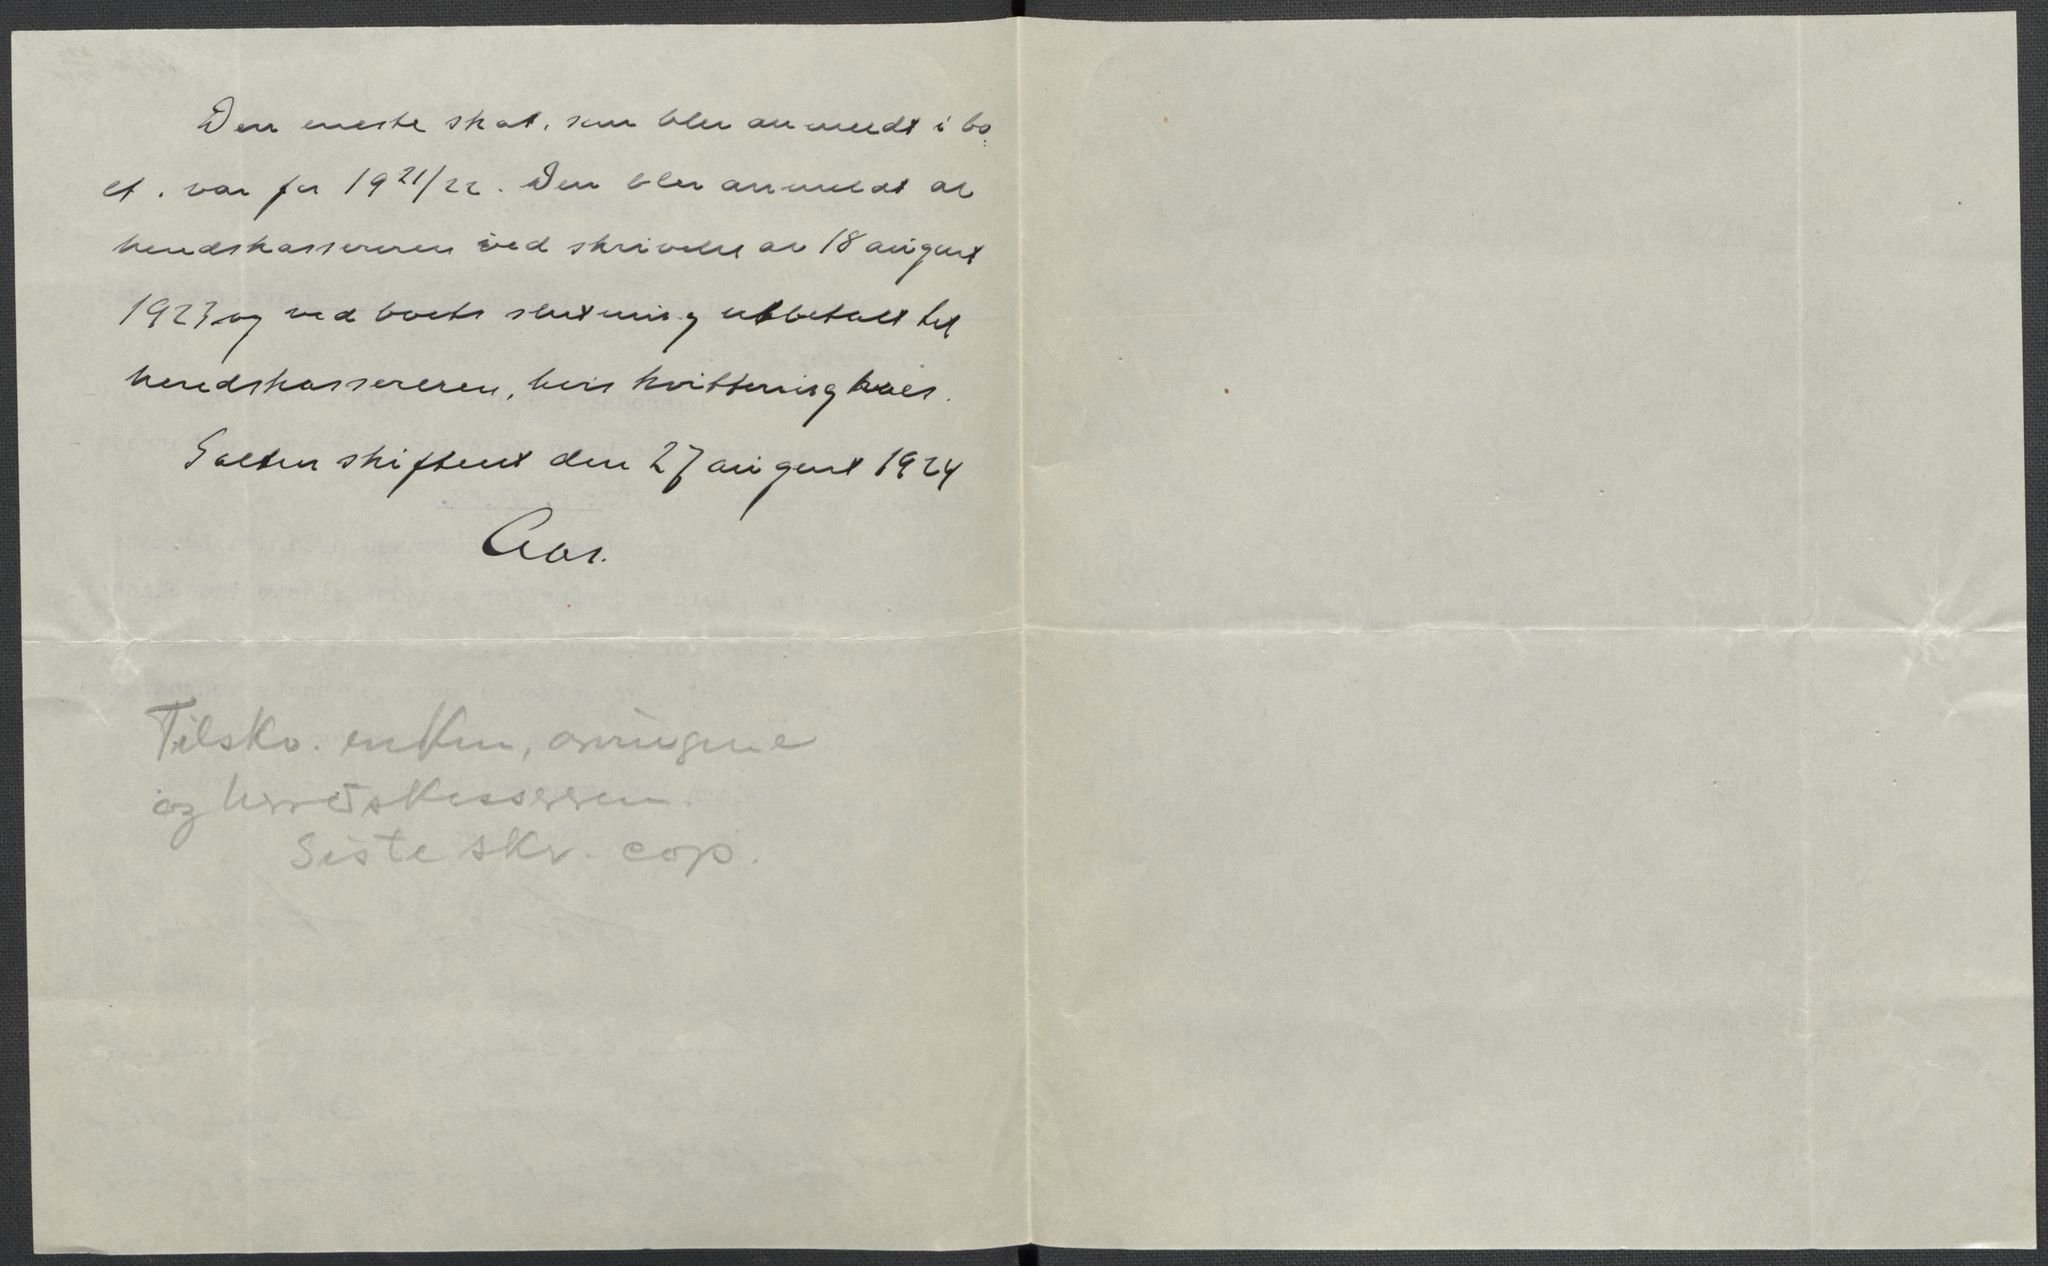 Den eneste skat, som blev anmeldt i bo-
et, var for 1921/22. Den blev anmeldt av
herredskassereren ved skrivelse av 18 august
1923 og ved boets slutning utbetalt til
herredskassereren, hvis kvittering haes.
Salten skifteret den 27 august 1924
Aas.
Tilskr. enken, arvingene
og herredskassereren.
Siste skr. cop.